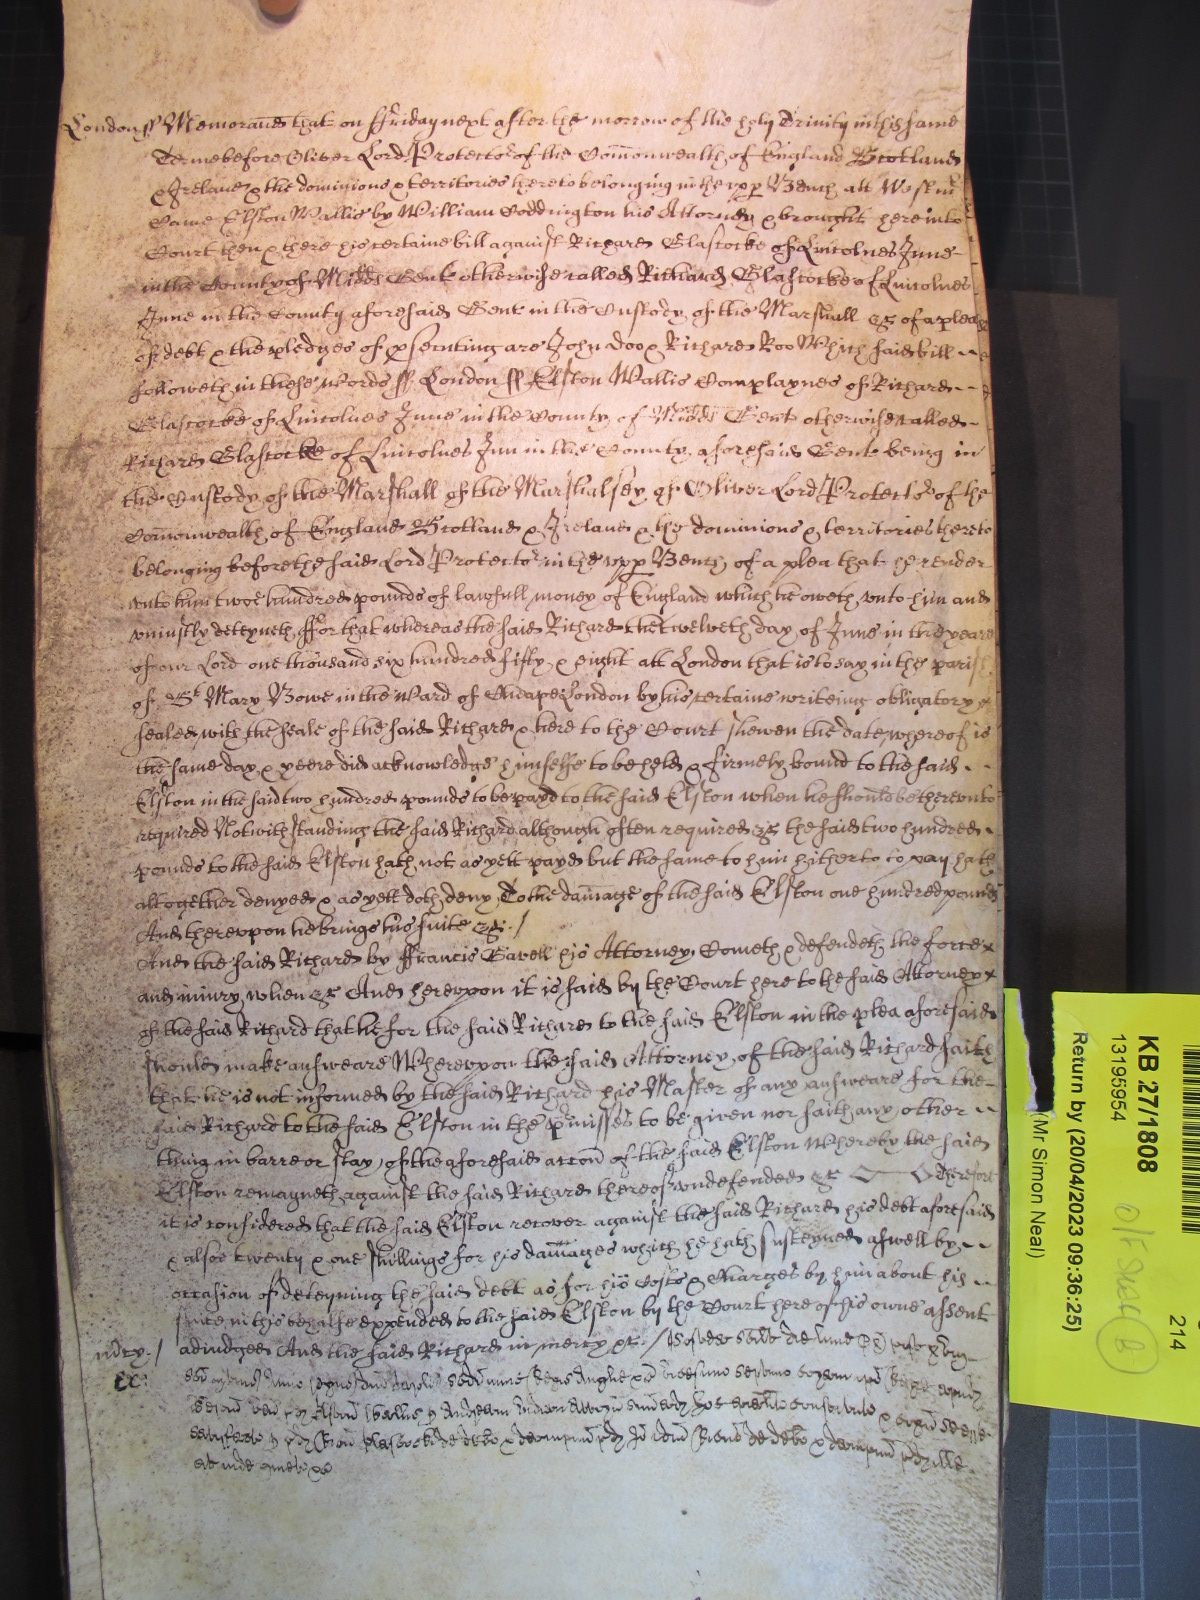 London ss Memorand that on ffriday next after the morrow of the holy Trinity in this same
Terme before Oliver Lord Protector of the Comonwealth of England Scotland
& Ireland & the dominions & territories thereto belonging in the upp Bench att Westm
Came Elston Wallis by William Coddington his Attorney & brought here into
Court then & there his certaine bill against Richard Glascocke of Lincolnes Inne
in the County of Midds Gent otherwise called Richard Glascocke of Lincolnes
Inne in the County aforesaid Gent in the Custody of the Marshall &c of a plea
of debt & the pledges of prosecuting are John Doo & Richard Roo Which said bill
followeth in these words ss London ss Elston Wallis Complaynes of Richard
Glascocke of Lincolnes Inne in the County of Midds Gent otherwise called
Richard Glascocke of Lincolnes Inn in the County aforesaid Gent being in
the Custody of the Marshall of the Marshalsey of Oliver Lord Protector of the
Comonwealth of England Scotland & Ireland & the dominions & territories thereto
belonging before the said Lord Protector in the upp Bench of a plea that he render
unto him two hundred pounds of lawfull money of England which he oweth unto him and
uniustly deteyneth ffor that whereas the said Richard the twelweth day of June in the yeare
of our Lord one thousand six hundred fifty & eight att London that is to say in the parish
of St Mary Bowe in the Ward of Cheape London by his certaine writeing obligatory
sealed with the seale of the said Richard & here to the Court shewen the date whereof is
the same day & yeere did acknowledge himselfe to be held & firmely bound to the said
Elston in the said two hundred pounds to be payd to the said Elston when he should be thereunto
required Notwithstanding the said Richard although often required &c the said two hundred
pounds to the said Elston hath not as yett payd but the same to him hitherto to pay hath
altogether denyed & as yett doth deny To the damage of the said Elston one hundred pounds
And thereupon he brings his suite &c /
And the said Richard by ffrancis Gavell his Attorney Cometh & defendeth the force
and iniury when &c And hereupon it is said by the Court here to the said Attorney
of the said Richard that he for the said Richard to the said Elston in the plea aforesaid
should make answeare Whereupon the said Attorney of the said Richard saith
that he is not informed by the said Richard his Master of any answeare for the
said Richard to the said Elston in the pmisses to be given nor saith any other
thing in barre or stay of the aforesaid accon of the said Elston Whereby the said
Elston remayneth against the said Richard thereof undefended &c Therefore
it is considered that the said Elston recover against the said Richard his debt aforesaid
& alsoe twenty & one shillings for his damages which he hath susteyned aswell by
occasion of deteyning the said debt as for his Costs & Charges by him about his
suite in this behalfe expended to the said Elston by the Court here of his owne assent
mercy / adiudged And the said Richard in mercy &c /
KB 27/1808
13195954
Return by (20/04/2023 09:36:25)
(Mr Simon Neal)
214